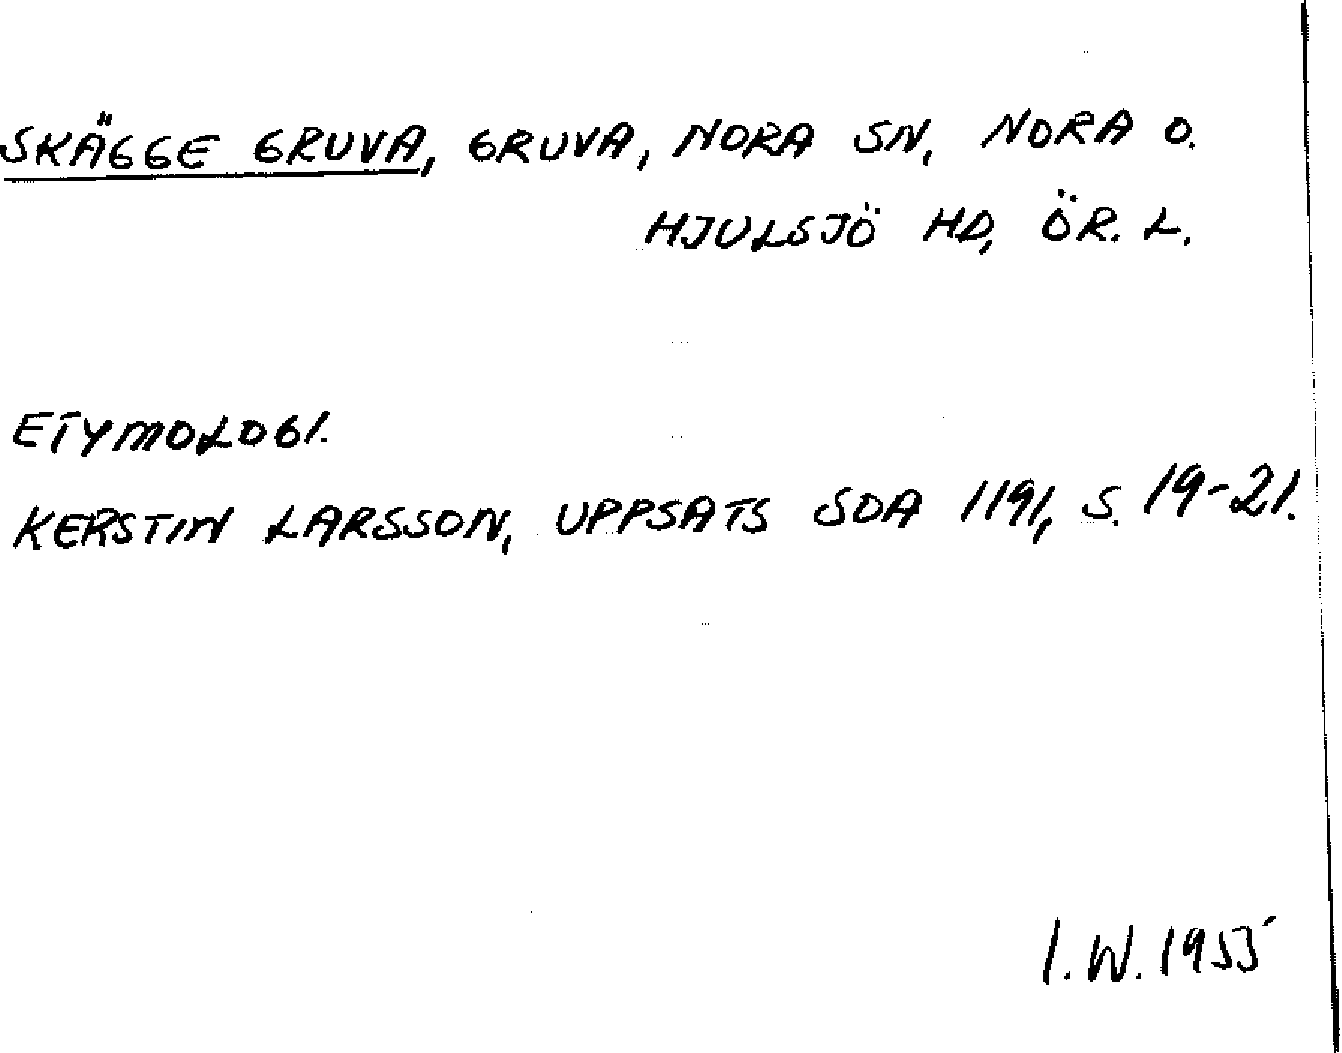 SKÄGGE GRUVA, GRUVA, NORA SN, NORA O.
HJULSJÖ HD, ÖR. L.
ETYMOLOGI.
KERSTIN LARSSON, UPPSATS SOA 1191, S. 19-21.
I. W. 1955